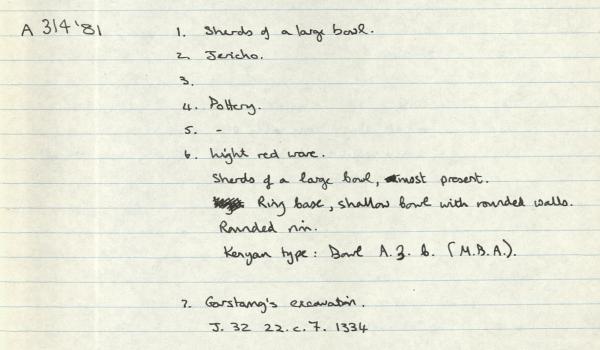 A 314 '81
1. Sherds of a large bowl.
2. Jericho.
3.
4. Pottery.
5. -
6. Light red ware.
Sherds of a large bowl, most present.
Ring base, shallow bowl with rounded walls.
Rounded rim.
Kenyan type: Bowl A.3.b. (M.B.A.).
7. Garstang's excavation.
J. 32 22.c.7. 1334